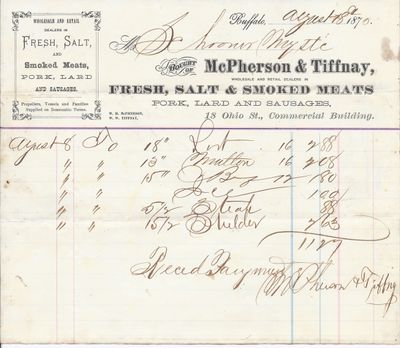 WHOLESALE AND RETAIL
DEALERS IN
FRESH, SALT,
AND
Smoked Meats,
PORK, LARD
AND SAUSAGES.
Propellers, Vessels and Families
Supplied on Reasonable Terms.
Buffalo, August 18th 1870.
M Schooner Mystic
BOUGHT OF McPHERSON & TIFFNAY,
WHOLESALE AND RETAIL DEALERS IN
FRESH, SALT & SMOKED MEATS
PORK, LARD AND SAUSAGES,
W. H. McPHERSON,
W. W. TIFFNAY.
18 Ohio St., Commercial Building.
August 8 To 18" 16 288
" " 13" Mutton 16 208
" " 15" 12 180
" " Ice 100
" " 5 1/2 Steak 88
" " 15 1/2 Shilder 263
1127
Recd Payment
McPherson & Tiffny